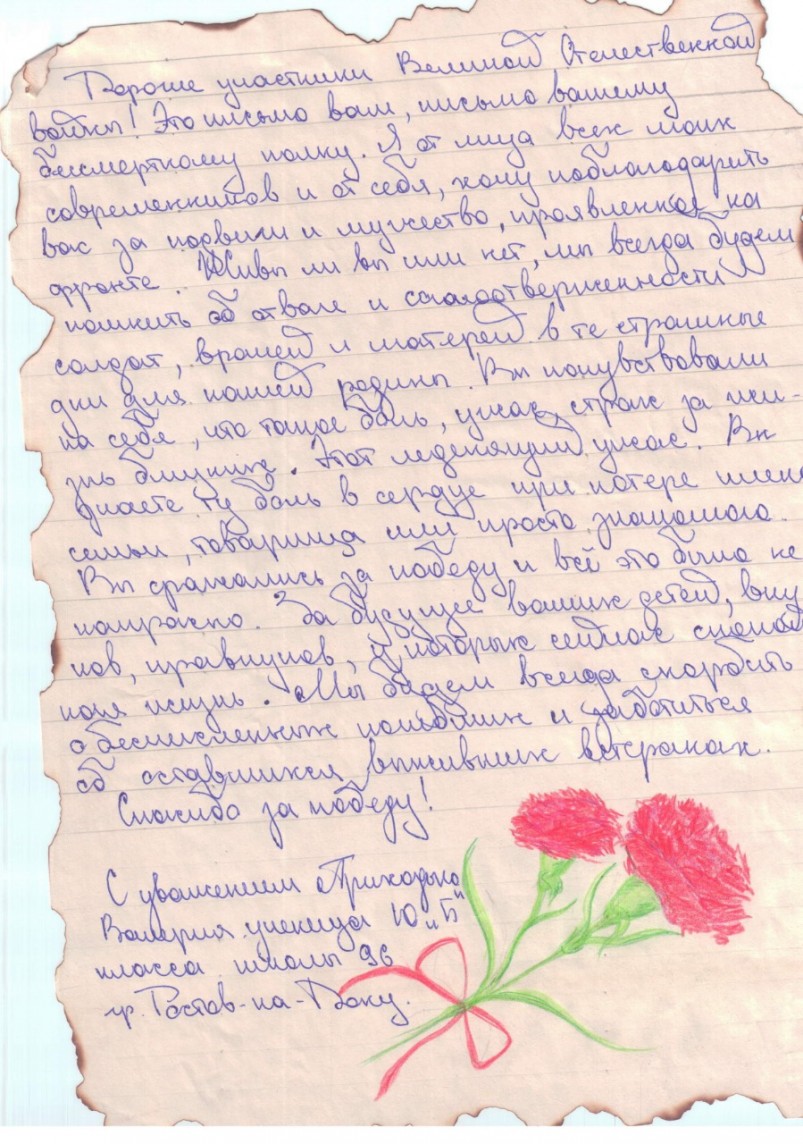 Дорогие участники Великой Отечественной
войны! Это письмо вам, письмо вашему
бессмертному полку. Я от лица всех моих
современников и от себя, хочу поблагодарить
вас за подвиги и мужество, проявленное на
фронте. Живы ли вы или нет, мы всегда будем
помнить об отваге и самоотверженности
солдат, врачей и матерей в те страшные
дни для нашей родины. Вы почувствовали
на себе, что такое боль, ужас, страх за жи-
знь ближних. Этот леденящий ужас. Вы
знаете ту боль в сердце при потере члена
семьи, товарища или просто знакомого.
Вы сражались за победу и всё это было не
напрасно. За будущее ваших детей, вну
ков, правнуков, у которых сейчас спокой
ная жизнь. Мы будем всегда скорбить
о бесчисленных погибших и заботиться
об оставшихся выживших ветеранах.
Спасибо за победу!
С уважением Приходько
Валерия ученица 10 „Б"
класса школы 96
гр. Ростов-на-Дону.